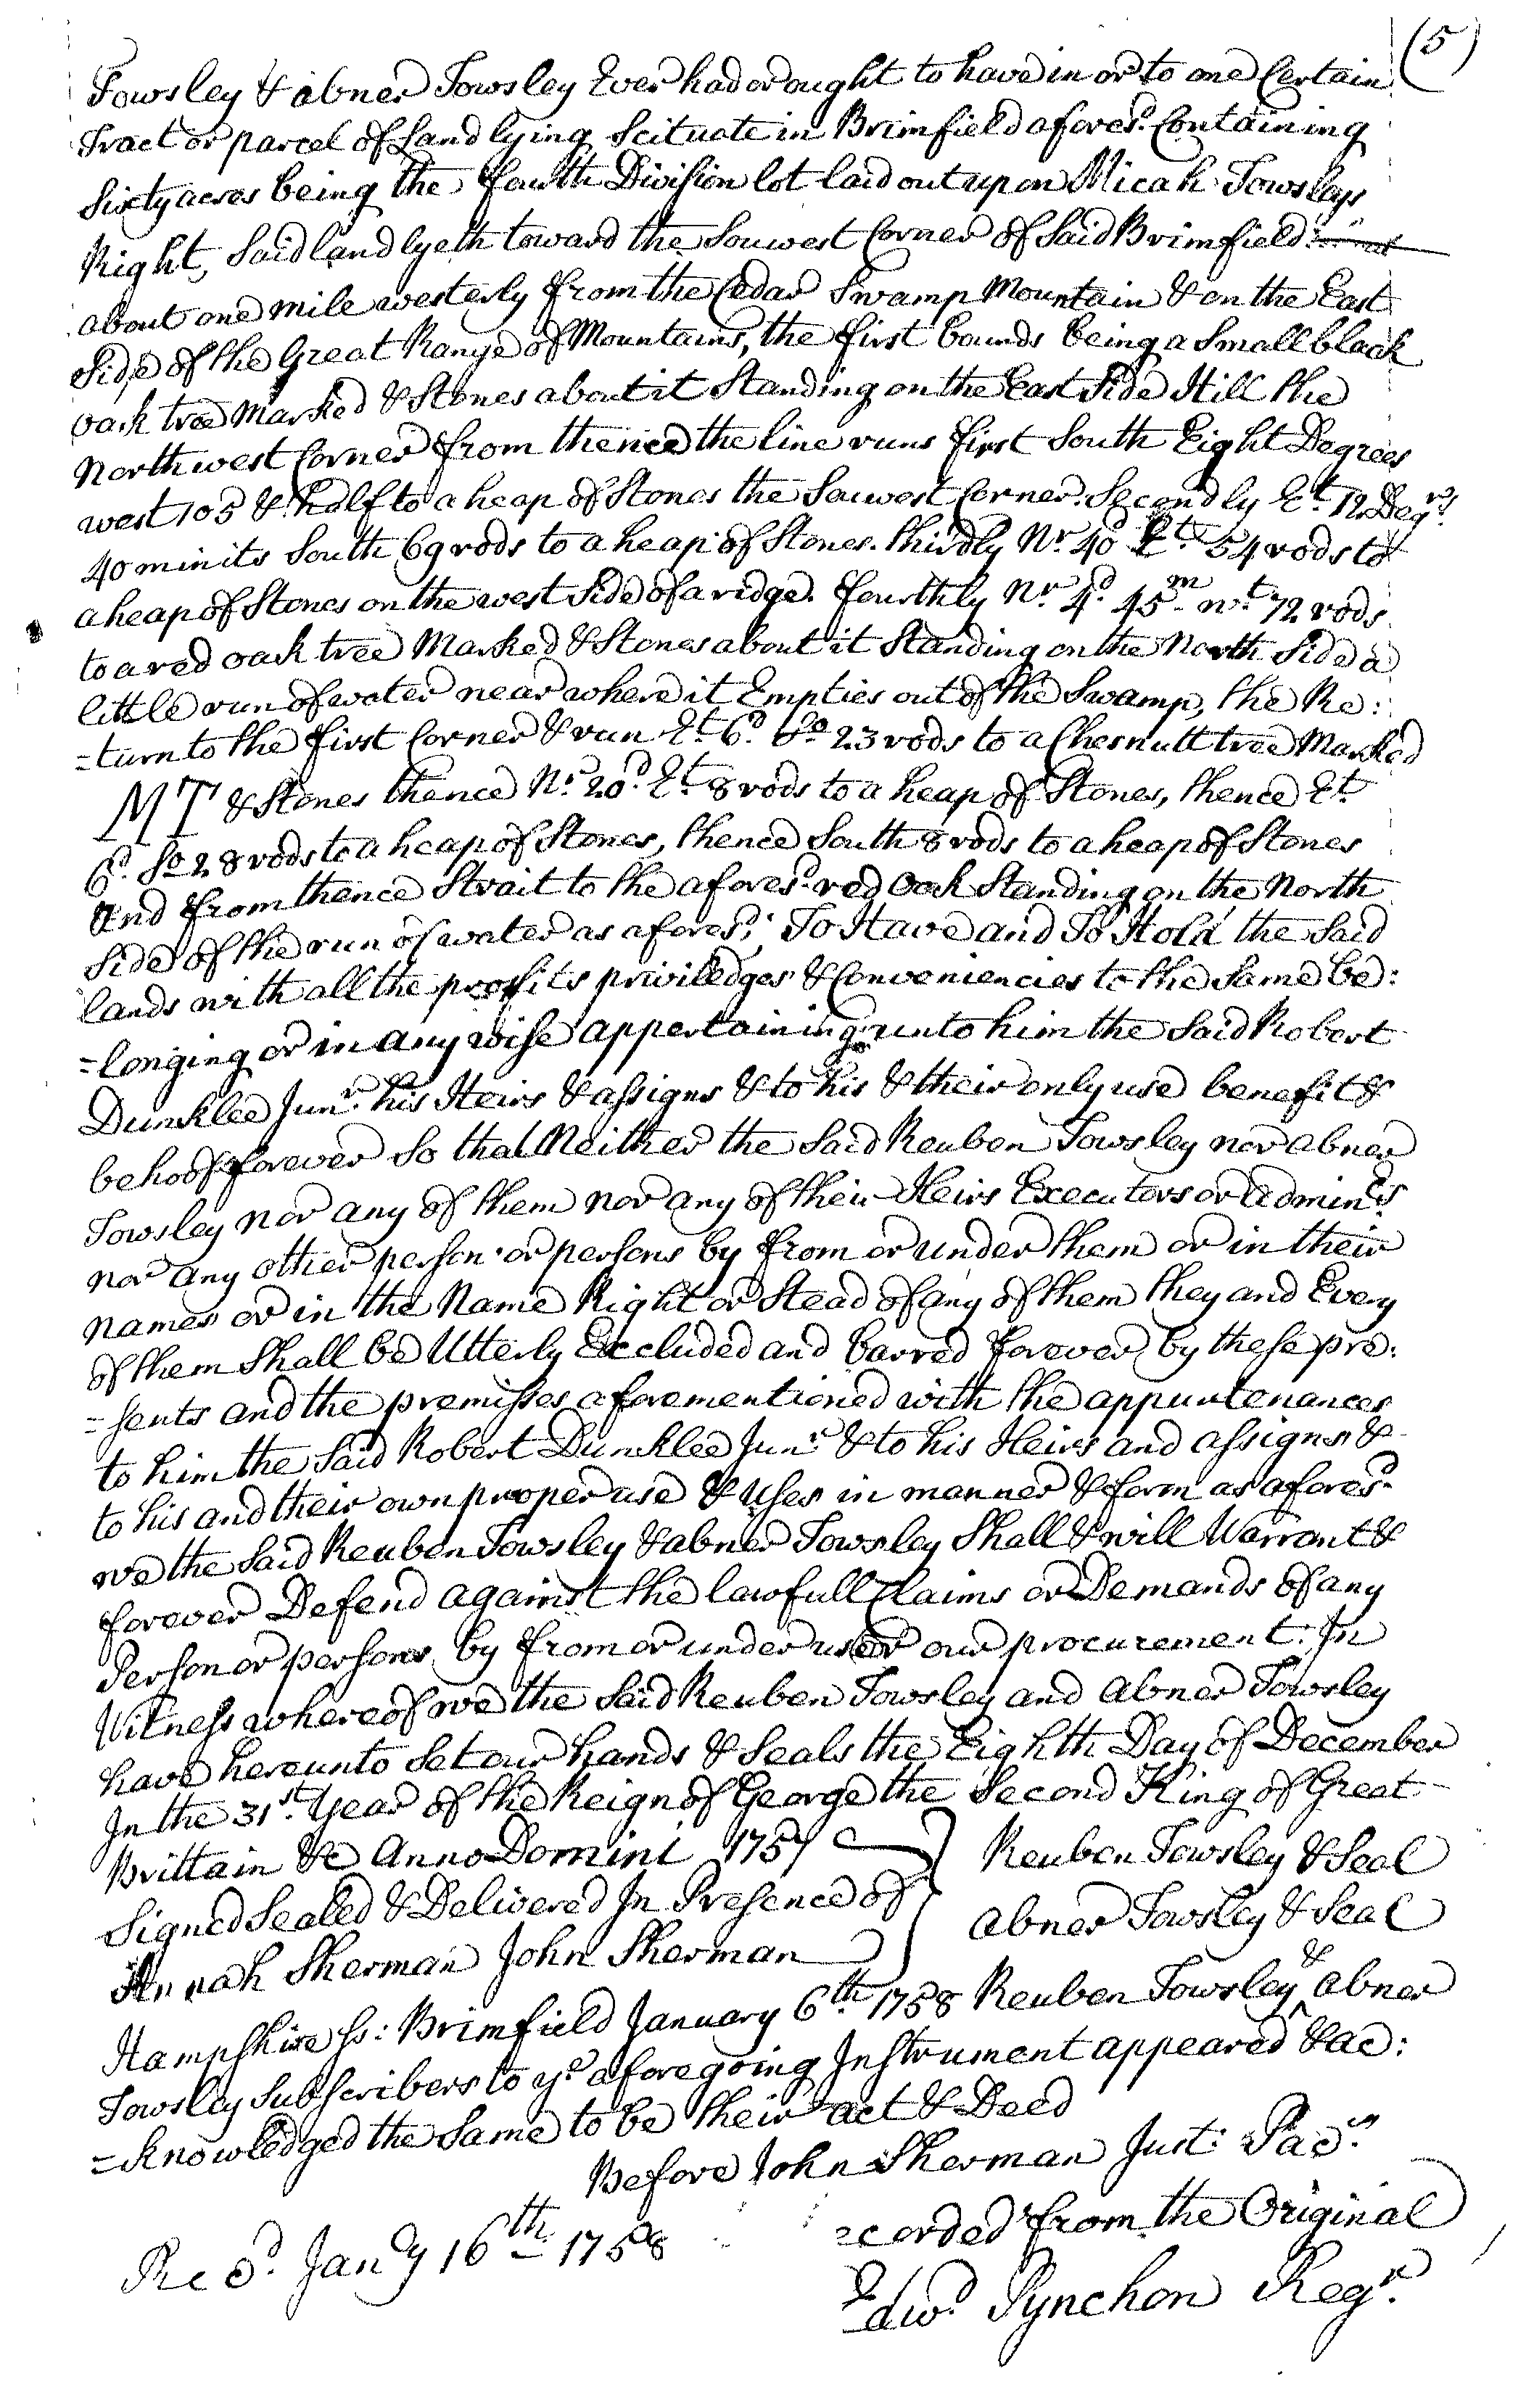 (5)
Towsley & abner Towsley Ever had or ought to have in or to one Certain
Tract or parcel of Land lying Scituate in Brimfield afores.d Containing
Sixty acres being the fourth Division lot laid out upon Micah Towsleys
Right, Said land lyeth toward the Souwest Corner of Said Brimfield
about one mile westerly from the Cedar Swamp Mountain & on the East
Side of the Great Range of Mountains, the first bounds being a Small black
oak tree Marked & Stones about it Standing on the East Side Hill the
Northwest Corner from thence the line runs first South Eight Degrees
west 105 & half to a heap of Stones the Souwest Corner. Secondly E.t 12 Deg.rs
40 minits South 69 rods to a heap of Stones. thirdly N.r 40.d E.t 54 rods to
a heap of Stones on the west Side of a ridge. fourthly N.r 4.d 45.m w.t 72 rods
to a red oak tree Marked & Stones about it Standing on the North Side a
little run of water near where it Empties out of the Swamp, the Re:
=turn to the first Corner & run E.t 6.d So 23 rods to a Chesnutt tree Marked
MT & Stones thence N.r 20.d E.t 8 rods to a heap of Stones, thence E.t
6.d So 28 rods to a heap of Stones, thence South 8 rods to a heap of Stones
and from thence Strait to the afores.d red Oak Standing on the North
Side of the run of water as afores.d; To Have and To Hold the Said
lands with all the profits priviledges & Conveniencies to the Same be:
=longing or in any wise appertaining unto him the Said Robert
Dunklee Jun.r his Heirs & assigns & to his & their only use benefit &
behoof forever So that Neither the Said Reuben Towsley nor abner
Towsley nor any of them nor any of their Heirs Executors or admin.rs
nor any other person or persons by from or under them or in their
names or in the Name Right or Stead of any of them they and Every
of them Shall be Utterly Excluded and barred forever by these pre:
=sents and the premisses aforementioned with the appurtenances
to him the Said Robert Dunklee Jun.r & to his Heirs and assigns &
to his and their own proper use & Uses in manner & form as afores.d
we the Said Reuben Towsley & abner Towsley Shall & will Warrant &
forever Defend against the lawfull Claims or Demands of any
Person or persons by from or under us or our procurement. In
Witness whereof we the Said Reuben Towsley and Abner Towsley
have hereunto Set our hands & Seals the Eighth Day of December
In the 31st. Year of the Reign of George the Second King of Great
Brittain &c Anno Domini 1757
Reuben Towsley & Seal
Signed Sealed & Delivered In Presence of
Abner Towsley & Seal
Hannah Sherman John Sherman
Hampshire ss: Brimfield January 6th 1758 Reuben Towsley & Abner
Towsley Subscribers to ye aforegoing Instrument appeared & ac:
=knowledged the Same to be their act & Deed
Before John Sherman Just: Pac.s
Rec.d Jan.y 16th 1758
ecorded from the Original
Edw.d Pynchon Reg.r